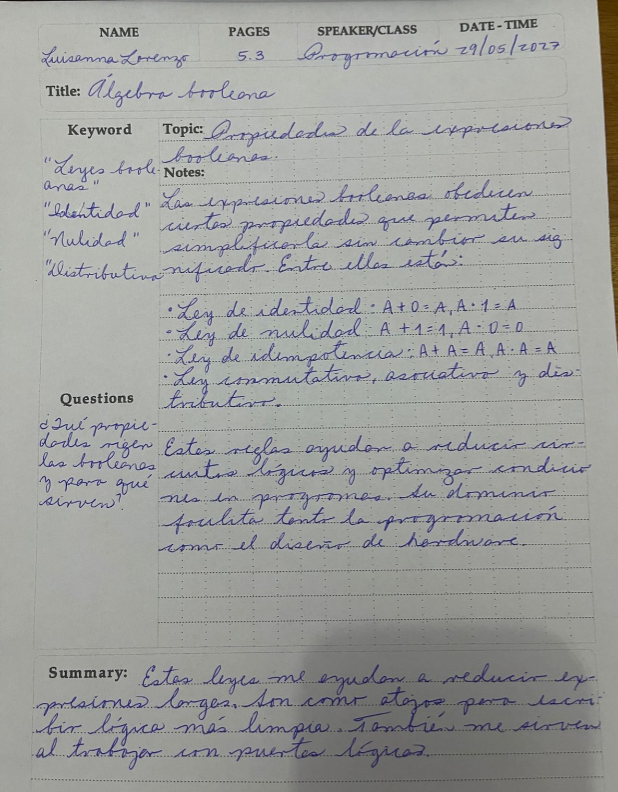 NAME PAGES SPEAKER/CLASS DATE - TIME
Luisanna Lorenzo 5.3 Programación 29/05/2027
Title: Álgebra booleana
Keyword
"Leyes boole-
anas"
"Identidad"
"Nulidad"
"Distributiva
Topic: Propiedades de la expresiones
booleanas.
Notes:
Las expresiones booleanas obedecen
ciertas propiedades que permiten
simplificarla sin cambiar su sig
nificado. Entre ellas están:
• Ley de identidad: A+0=A, A·1=A
• Ley de nulidad: A+1=1, A·0=0
• Ley de idempotencia: A+A=A, A·A=A
• Ley conmutativa, asociativa y dis-
tributiva.
Questions
¿Qué propie-
dades rigen
las booleanas
y para qué
sirven?
Estas reglas ayudan a reducir cir-
cuitos lógicos y optimizar condicio
nes en programas. Su dominio
facilita tanto la programación
como el diseño de hardware.
Summary: Estas leyes me ayudan a reducir ex-
presiones largas. Son como atajos para escri-
bir lógica más limpia. También me sirven
al trabajar con puertas lógicas.